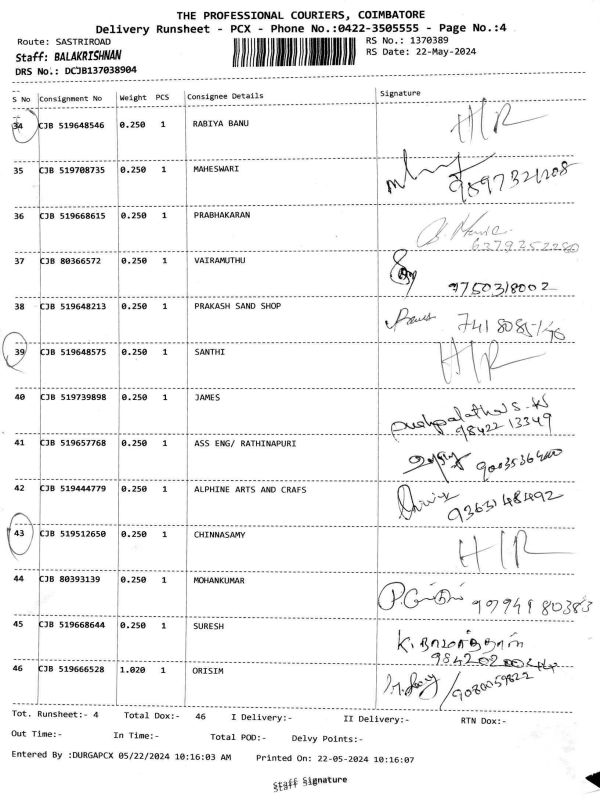 THE PROFESSIONAL COURIERS, COIMBATORE
Delivery Runsheet - PCX - Phone No.:0422-3505555 - Page No.:4
Route: SASTRIROAD RS No.: 1370389
Staff: BALAKRISHNAN RS Date: 22-May-2024
DRS No.: DCJB137038904
S No Consignment No Weight PCS Consignee Details Signature
34 CJB 519648546 0.250 1 RABIYA BANU H/R
35 CJB 519708735 0.250 1 MAHESWARI
36 CJB 519668615 0.250 1 PRABHAKARAN
6379252280
37 CJB 80366572 0.250 1 VAIRAMUTHU
9750318002
38 CJB 519648213 0.250 1 PRAKASH SAND SHOP
39 CJB 519648575 0.250 1 SANTHI H/R
40 CJB 519739898 0.250 1 JAMES
98422 13349
41 CJB 519657768 0.250 1 ASS ENG/ RATHINAPURI
42 CJB 519444779 0.250 1 ALPHINE ARTS AND CRAFS
9363148492
43 CJB 519512650 0.250 1 CHINNASAMY H/R
44 CJB 80393139 0.250 1 MOHANKUMAR
45 CJB 519668644 0.250 1 SURESH
46 CJB 519666528 1.020 1 ORISIM
9080059822
Tot. Runsheet:- 4 Total Dox:- 46 I Delivery:- II Delivery:- RTN Dox:-
Out Time:- In Time:- Total POD:- Delvy Points:-
Entered By :DURGAPCX 05/22/2024 10:16:03 AM Printed On: 22-05-2024 10:16:07
Staff Signature